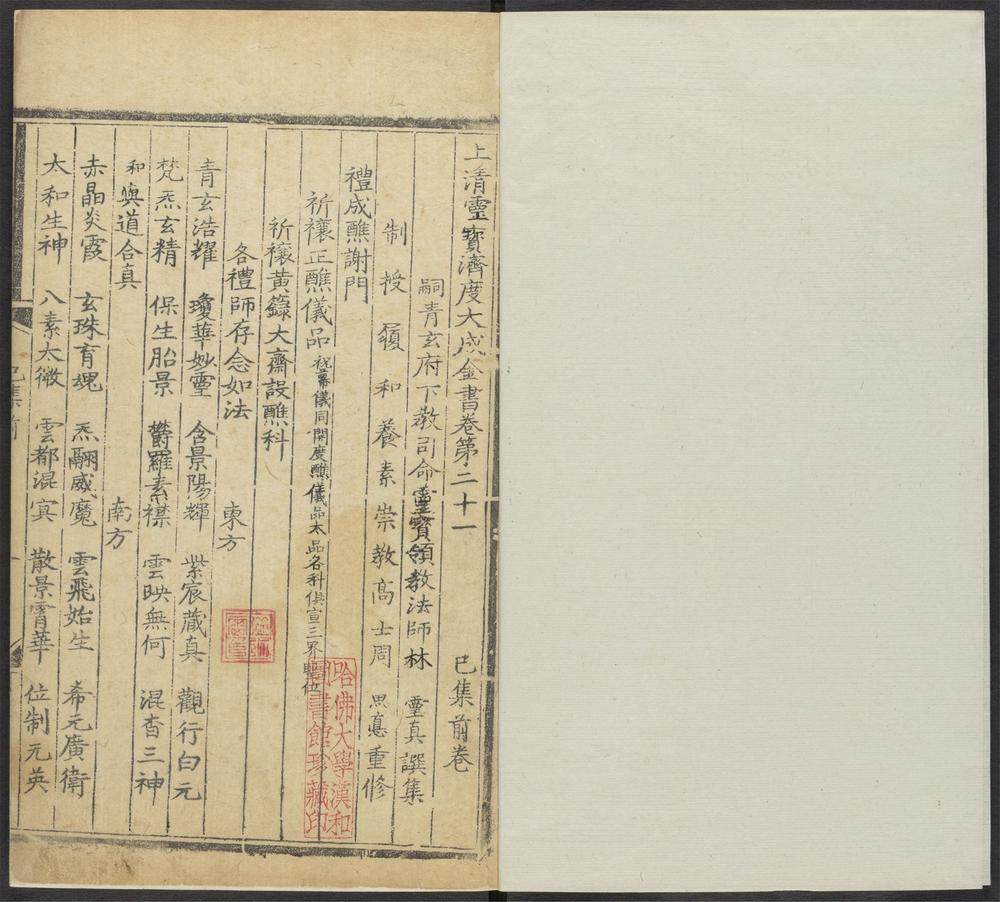 上清靈寶濟度大成金書卷第二十一 己集前卷
嗣青玄府下教司命靈寶領教法師林 靈真譔集
制授履和養素崇教高士周 思悳重修
禮成醮謝門
祈禳正醮儀品 祝幕儀同開度醮儀品太品各科俱宣三界醮位
祈禳黃籙大齋設醮科
各禮師存念如法 東方
青玄浩耀 瓊華妙靈 含景陽輝 紫宸藏真 觀行白元
梵炁玄精 保生胎景 欝羅素襟 雲映無何 混杳三神
和與道合真 南方
赤晶炎霞 玄珠育魂 炁翮威魔 雲飛始生 希元廣衛
太和生神 八素太微 雲都混冥 散景霄華 位制元英
己集前
哈佛大學漢和圖書館珍藏印